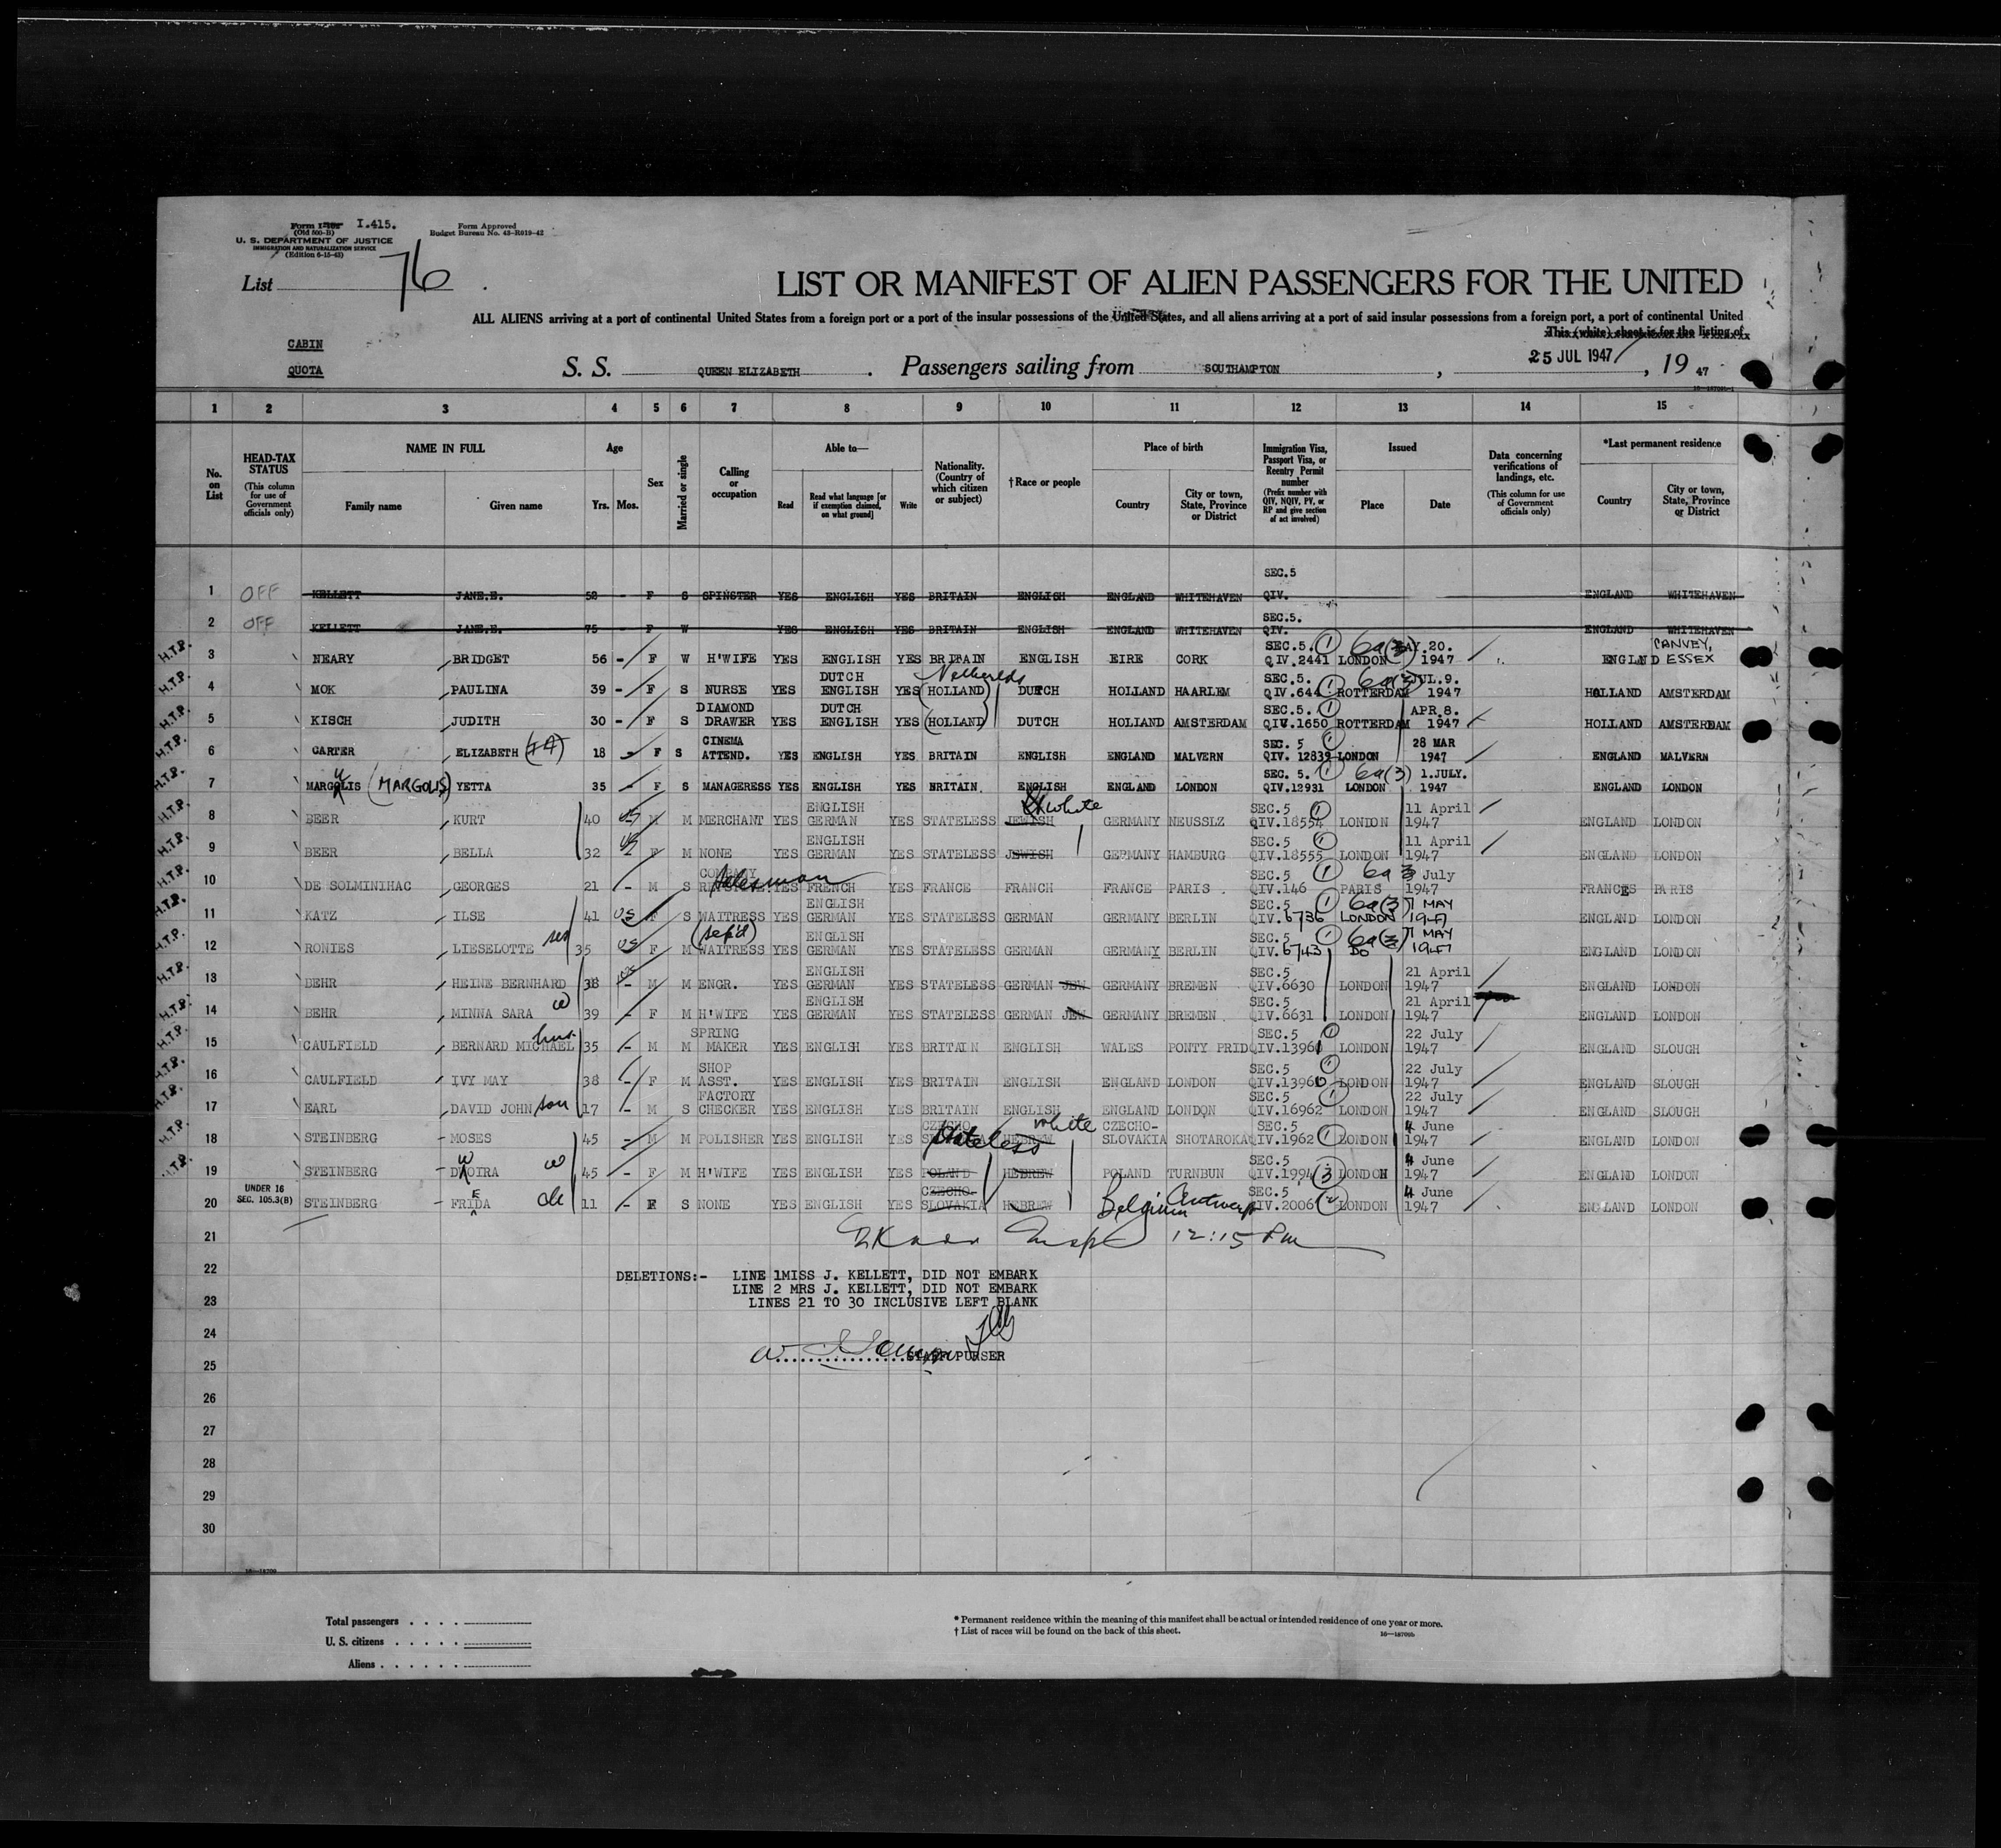 Form I-415.
(Old 500-B)
U. S. DEPARTMENT OF JUSTICE
IMMIGRATION AND NATURALIZATION SERVICE
(Edition 6-15-43)
Form Approved
Budget Bureau No. 43-R019-42
List 76
LIST OR MANIFEST OF ALIEN PASSENGERS FOR THE UNITED
ALL ALIENS arriving at a port of continental United States from a foreign port or a port of the insular possessions of the United States, and all aliens arriving at a port of said insular possessions from a foreign port, a port of continental United
This (white) sheet is for the listing of
CABIN
QUOTA
S. S. QUEEN ELIZABETH . Passengers sailing from SOUTHAMPTON , 25 JUL 1947 , 19 47
1 2 3 4 5 6 7 8 9 10 11 12 13 14 15
No. on List
HEAD-TAX STATUS (This column for use of Government officials only)
NAME IN FULL Family name Given name
Age Yrs. Mos.
Sex
Married or single
Calling or occupation
Able to— Read Read what language [or if exemption claimed, on what ground] Write
Nationality. (Country of which citizen or subject)
†Race or people
Place of birth Country City or town, State, Province or District
Immigration Visa, Passport Visa, or Reentry Permit number (Prefix number with QIV, NQIV, PV, or RP and give section of act involved)
Issued Place Date
Data concerning verifications of landings, etc. (This column for use of Government officials only)
*Last permanent residence Country City or town, State, Province or District
1 OFF KELLETT JANE.E. 58 - F S SPINSTER YES ENGLISH YES BRITAIN ENGLISH ENGLAND WHITEHAVEN SEC.5 QIV. ENGLAND WHITEHAVEN
2 OFF KELLETT JANE.E. 75 - F W YES ENGLISH YES BRITAIN ENGLISH ENGLAND WHITEHAVEN SEC.5. QIV. ENGLAND WHITEHAVEN
H.T.P. 3 NEARY BRIDGET 56 - F W H'WIFE YES ENGLISH YES BRITAIN ENGLISH EIRE CORK SEC.5. 1 QIV.2441 LONDON 6a(3) AY.20. 1947 ENGLND CANVEY, ESSEX
H.T.P. 4 MOK PAULINA 39 - F S NURSE YES DUTCH ENGLISH YES (HOLLAND) Netherlds DUTCH HOLLAND HAARLEM SEC.5. 1 QIV.644 ROTTERDAM 6a(3) JUL.9. 1947 HOLLAND AMSTERDAM
H.T.P. 5 KISCH JUDITH 30 - F S DIAMOND DRAWER YES DUTCH ENGLISH YES (HOLLAND) DUTCH HOLLAND AMSTERDAM SEC.5. 1 QIV.1650 ROTTERDAM APR.8. 1947 HOLLAND AMSTERDAM
H.T.P. 6 CARTER ELIZABETH 18 - F S CINEMA ATTEND. YES ENGLISH YES BRITAIN ENGLISH ENGLAND MALVERN SEC. 5 1 QIV. 12839 LONDON 28 MAR 1947 ENGLAND MALVERN
H.T.P. 7 MARGOLIS (MARGOLIS) YETTA 35 - F S MANAGERESS YES ENGLISH YES NRITAIN ENGLISH ENGLAND LONDON SEC. 5. 1 QIV.12931 LONDON 6a(3) 1.JULY. 1947 ENGLAND LONDON
H.T.P. 8 BEER KURT 40 M M MERCHANT YES ENGLISH GERMAN YES STATELESS JEWISH white GERMANY NEUSSLZ SEC.5 1 QIV.18554 LONDON 11 April 1947 ENGLAND LONDON
H.T.P. 9 BEER BELLA 32 - F M NONE YES ENGLISH GERMAN YES STATELESS JEWISH GERMANY HAMBURG SEC.5 1 QIV.18555 LONDON 11 April 1947 ENGLAND LONDON
H.T.P. 10 DE SOLMINIHAC GEORGES 21 - M S COMPANY Salesman YES FRENCH YES FRANCE FRANCH FRANCE PARIS . SEC.5 1 QIV.146 PARIS 6a 3 July 1947 FRANCES PARIS
H.T.P. 11 KATZ ILSE 41 US F S WAITRESS YES ENGLISH GERMAN YES STATELESS GERMAN GERMANY BERLIN SEC.5 1 QIV.6736 LONDON 6a(3) 7 MAY 1947 ENGLAND LONDON
H.T.P. 12 RONIES LIESELOTTE sis 35 US F M (sep'd) WAITRESS YES ENGLISH GERMAN YES STATELESS GERMAN GERMANY BERLIN SEC.5 1 QIV.6743 DO 6a(3) 7 MAY 1947 ENGLAND LONDON
H.T.P. 13 BEHR HEINE BERNHARD 38 - M M ENGR. YES ENGLISH GERMAN YES STATELESS GERMAN JEW GERMANY BREMEN SEC.5 QIV.6630 LONDON 21 April 1947 ENGLAND LONDON
H.T.P. 14 BEHR MINNA SARA w 39 - F M H'WIFE YES ENGLISH GERMAN YES STATELESS GERMAN JEW GERMANY BREMEN SEC.5 QIV.6631 LONDON 21 April 1947 ENGLAND LONDON
H.T.P. 15 CAULFIELD BERNARD MICHAEL hus. 35 - M M SPRING MAKER YES ENGLISH YES BRITAIN ENGLISH WALES PONTY PRID SEC.5 1 QIV.13961 LONDON 22 July 1947 ENGLAND SLOUGH
H.T.P. 16 CAULFIELD IVY MAY 38 - F M SHOP ASST. YES ENGLISH YES BRITAIN ENGLISH ENGLAND LONDON SEC.5 1 QIV.13960 LONDON 22 July 1947 ENGLAND SLOUGH
H.T.P. 17 EARL DAVID JOHN son 17 - M S FACTORY CHECKER YES ENGLISH YES BRITAIN ENGLISH ENGLAND LONDON SEC.5 1 QIV.16962 LONDON 22 July 1947 ENGLAND SLOUGH
H.T.P. 18 STEINBERG MOSES 45 - M M POLISHER YES ENGLISH YES CZECHO Stateless HEBREW white CZECHO-SLOVAKIA SHOTAROKA SEC.5 QIV.1962 1 LONDON 4 June 1947 ENGLAND LONDON
H.T.P. 19 STEINBERG DWOIRA w 45 - F M H'WIFE YES ENGLISH YES POLAND HEBREW POLAND TURNBUN SEC.5 QIV.1994 3 LONDON 4 June 1947 ENGLAND LONDON
20 UNDER 16 SEC. 105.3(B) STEINBERG FRIEDA ch 11 - F S NONE YES ENGLISH YES CZECHO-SLOVAKIA HEBREW Belgium Antwerp SEC.5 QIV.2006 LONDON 4 June 1947 ENGLAND LONDON
21 12:15 Pm
22 DELETIONS:- LINE 1MISS J. KELLETT, DID NOT EMBARK
LINE 2 MRS J. KELLETT, DID NOT EMBARK
23 LINES 21 TO 30 INCLUSIVE LEFT BLANK
24
25 STAFF PURSER
26
27
28
29
30
16—18709
Total passengers . . . .
U. S. citizens . . . . .
Aliens . . . . . .
* Permanent residence within the meaning of this manifest shall be actual or intended residence of one year or more.
† List of races will be found on the back of this sheet.
16—18709b